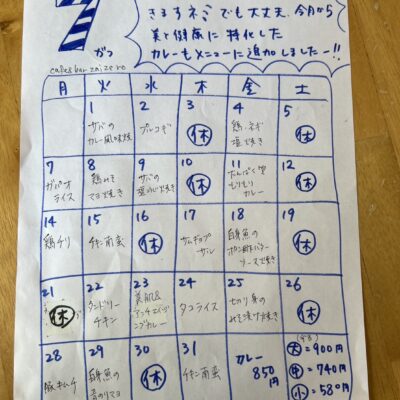 7
がつ
cafe&bar zaizero
でも大丈夫、今月から
美と健康に特化した
カレーもメニューに追加しましたー!!
月 火 水 木 金 土
1 2 3 4 5
サバの
カレー風味焼
プルコギ
休
鶏・ネギ
塩焼き
休
7 8 9 10 11 12
ガパオ
ライス
鶏みそ
マヨ焼き
サバの
焼き
休
たんぱく質
もりもり
カレー
休
14 15 16 17 18 19
鶏チリ
チキン南蛮
休
サムギョプ
サル
白身魚の
ポン酢バター
ソース焼き
休
21 22 23 24 25 26
休
タンドリー
チキン
美肌&
アンチエイジ
ングカレー
タコライス
切り身の
みそ漬け焼き
休
28 29 30 31
豚キムチ
白身魚の
マヨ
休
チキン南蛮
カレー
850円
大=900円
中=740円
小=580円